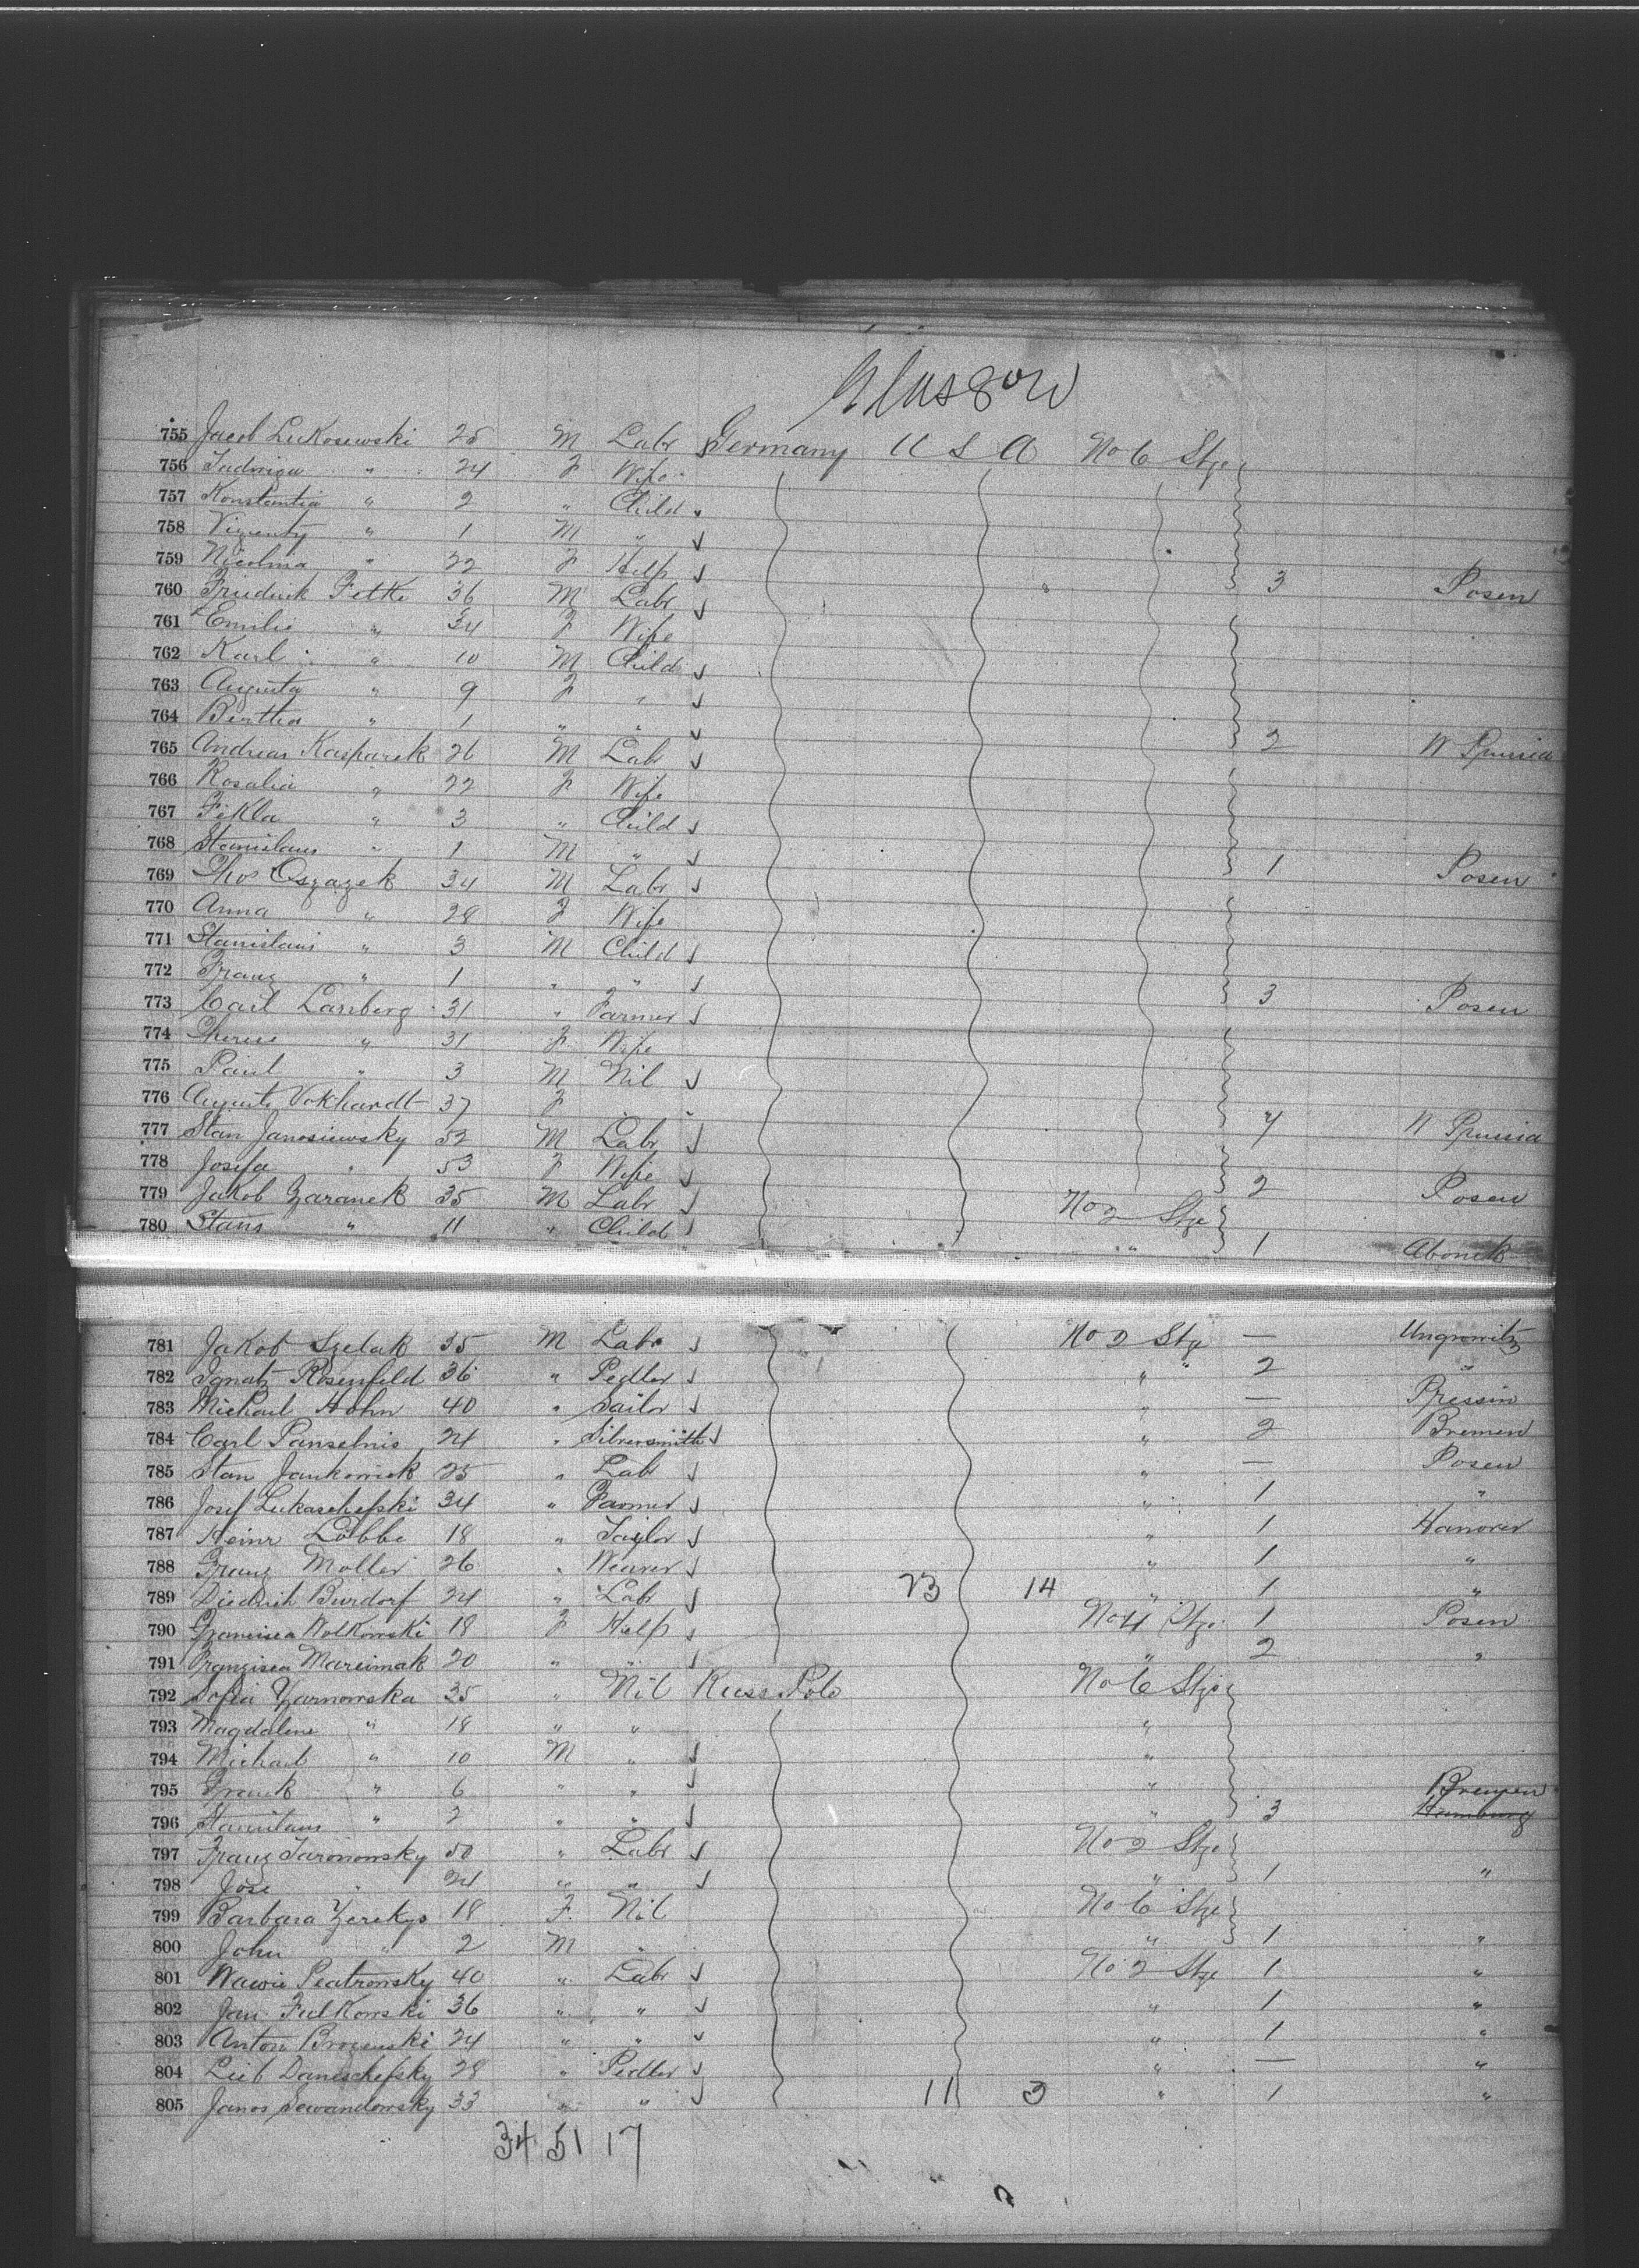 Glasgow
755 Jacob Lukosewski 25 M Labr Germany U S A No 6 Stge
756 Jadwiga " 24 F Wife
757 Konstantia " 2 " Child
758 Vizenty " 1 M "
759 Nicolina " 22 F Help 3 Posen
760 Friedrick Fetke 36 M Labr
761 Emilie " 34 F Wife
762 Karl " 10 M Child
763 Augusta " 9 F "
764 Bertha " 1 " " 2 W Prussia
765 Andreas Kasparek 26 M Labr
766 Rosalia " 22 F Wife
767 Fekla " 3 " Child
768 Stanislaus " 1 M " 1 Posen
769 Thos Oszazek 34 M Labr
770 Anna " 28 F Wife
771 Stanislaus " 3 M Child
772 Franz " 1 " " 3 Posen
773 Carl Lanberg 31 " Farmer
774 Therese " 31 F Wife
775 Paul " 3 M Nil
776 Auguste Vokhardt 37 F " 4 W Prussia
777 Stan Janosiewsky 52 M Labr
778 Josefa " 53 F Wife 2 Posen
779 Jakob Zaranek 35 M Labr No 2 Stge
780 Stans " 11 " Child " " 1 Abonek
781 Jakob Szelak 35 M Labr No 2 Stge — Ungrowitz
782 Ignatz Rosenfeld 36 " Pedler " " 2 "
783 Michael Hohn 40 " Sailor " — Pressin
784 Carl Panselnis 24 " Silversmith " 2 Bremen
785 Stan Jankowiak 25 " Labr " — Posen
786 Josef Lukaschefski 34 " Farmer " 1 "
787 Heinr Löbbe 18 " Taylor " 1 Hanover
788 Franz Moller 26 " Weaver " 1 "
789 Diedrich Burdorf 24 " Labr 23 14 " 1 "
790 Francisca Wolkowski 18 F Help No 4 Stge 1 Posen
791 Franzisca Marcimak 20 " " " 2 "
792 Sofia Zarnowska 35 " Nil Russ Pole No 6 Stge
793 Magdalene " 18 " " "
794 Michael " 10 M " "
795 Frank " 6 " " " Bremen
796 Stanislaus " 2 " " " 3 Hamburg
797 Franz Jaronowsky 50 " Labr No 2 Stge
798 Jose " 24 " " " 1 "
799 Barbara Zerekys 18 F. Nil No 6 Stge
800 John " 2 M " " 1 "
801 Wawie Peatronsky 40 " Labr No 2 Stge 1 "
802 Jan Fulkowski 36 " " " 1 "
803 Anton Brozenski 24 " " " 1 "
804 Lieb Daneschefsky 28 " Pedler " — "
805 Janos Sewandowsky 33 " " 11 3 " 1 "
34 51 17